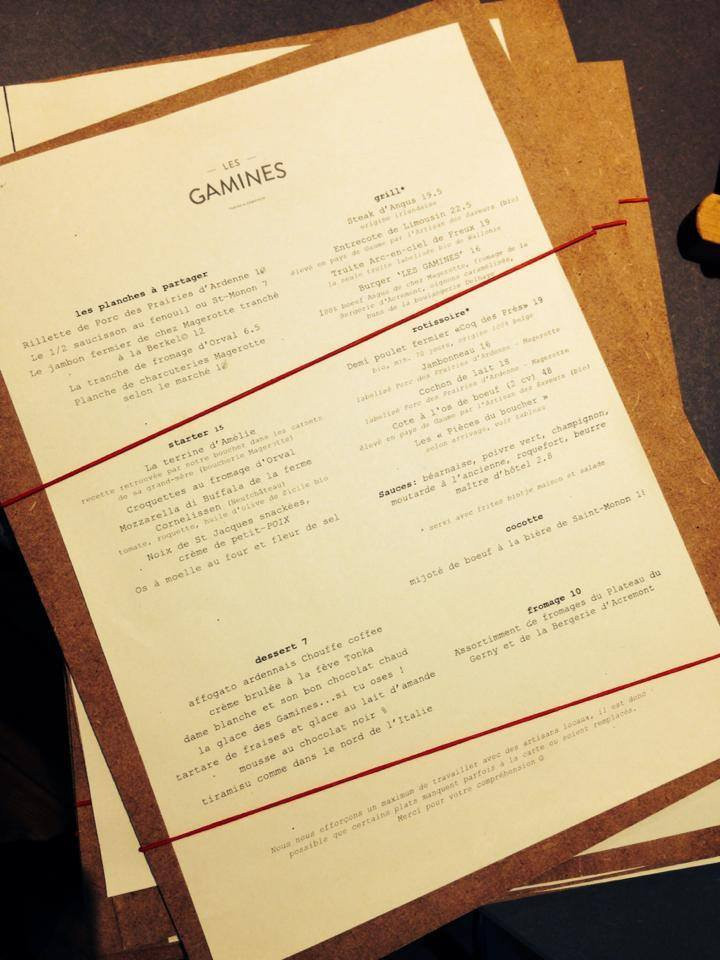 LES
GAMINES
les planches à partager
Rillette de Porc des Prairies d'Ardenne 10
Le 1/2 saucisson au fenouil ou St-Monon 7
Le jambon fermier de chez Magerotte tranché
à la Berkel© 12
La tranche de fromage d'Orval 6.5
Planche de charcuteries Magerotte
selon le marché
starter 15
La terrine d'Amélie
recette retrouvée par notre boucher dans les carnets
de sa grand-mère (boucherie Magerotte)
Croquettes au fromage d'Orval
Mozzarella di Buffala de la ferme
Cornelissen (Neufchâteau)
tomate, roquette, huile d'olive de Sicile bio
Noix de St Jacques snackées,
crème de petit-POIX
Os à moelle au four et fleur de sel
dessert 7
affogato ardennais Chouffe coffee
crème brulée à la fève Tonka
dame blanche et son bon chocolat chaud
la glace des Gamines...si tu oses !
tartare de fraises et glace au lait d'amande
mousse au chocolat noir
tiramisu comme dans le nord de l'Italie
grill*
Steak d'Angus 19.5
origine irlandaise
Entrecote de Limousin 22.5
élevé en pays de Gaume par l'Artisan des Saveurs (bio)
Truite Arc-en-ciel de Freux 19
la seule truite labelisée bio de Wallonie
Burger 'LES GAMINES' 16
100% boeuf Angus de chez Magerotte, fromage de la
Bergerie d'Acremont, oignons caramélisés,
buns de la boulangerie Delhaye
rotissoire*
Demi poulet fermier «Coq des Prés» 19
bio, min. 70 jours, origine 100% Belge
Jambonneau 16
labelisé Porc des Prairies d'Ardenne - Magerotte
Cochon de lait 18
labelisé Porc des Prairies d'Ardenne - Magerotte
Cote à l'os de boeuf (2 cv) 48
élevé en pays de Gaume par l'Artisan des Saveurs (bio)
Les « Pièces du boucher »
selon arrivage, voir tableau
Sauces: béarnaise, poivre vert, champignon,
moutarde à l'ancienne, roquefort, beurre
maître d'hôtel 2.8
* servi avec frites bintje maison et salade
cocotte
mijoté de boeuf à la bière de Saint-Monon
fromage 10
Assortimment de fromages du Plateau du
Gerny et de la Bergerie d'Acremont
Nous nous efforçons un maximum de travailler avec des artisans locaux, il est donc
possible que certains plats manquent parfois à la carte ou soient remplacés.
Merci pour votre compréhension